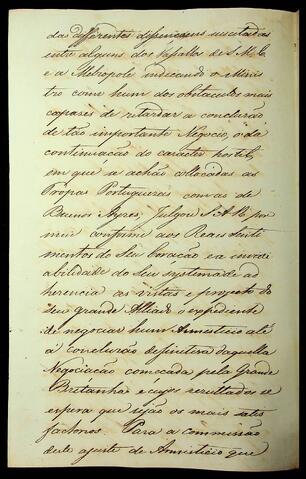 das differentes dissencoens suscitadas
entre alguns dos Vassallos de S. M. C.
e a Metropole indicando o Minis
tro como hum dos obstaculos mais
capases de retardar a conclusão
de tão importante Negocio, o da
continuação do caracter hostil,
em que se achão collocadas as
Tropas Portuguezas com as de
Buenos Ayres, Julgou S. A. R. por
mui conforme aos Reaes Senti
mentos do Seu Coração e a invari
abilidade do Seu systema de ad
herencia as vistas e projecto do
Seu grande Alliado o expediente
de negociar hum Armisticio até
á conclusão definitiva daquella
Negociação começada pela Grande
Bretanha e cujos resultados se
espera que sejão os mais satis
factorios. Para a commissão
deste ajuste de Armisticio que